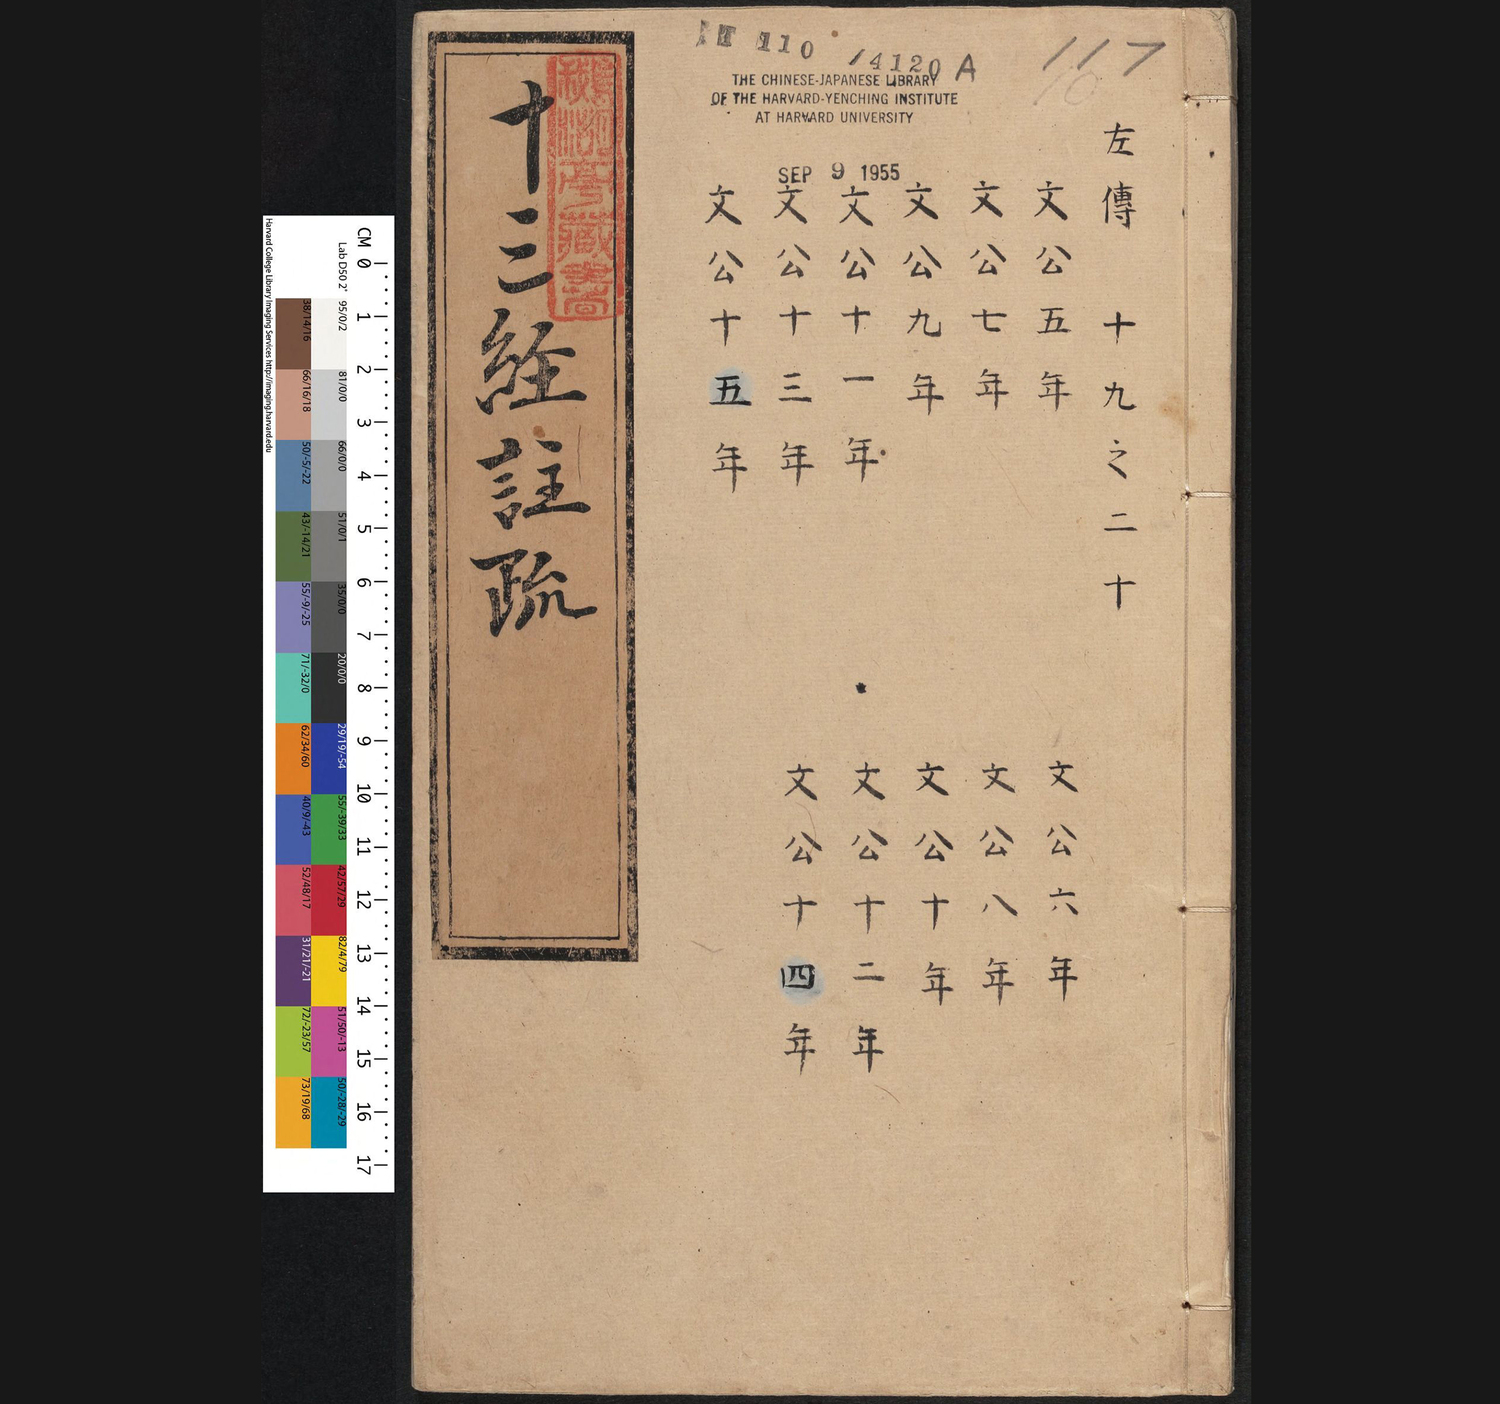 左傳 十九之二十
文公五年 文公六年
文公七年 文公八年
文公九年 文公十年
文公十一年 文公十二年
文公十三年 文公十四年
文公十五年
十三經註疏
110 14120 A
117
10
THE CHINESE-JAPANESE LIBRARY
OF THE HARVARD-YENCHING INSTITUTE
AT HARVARD UNIVERSITY
SEP 9 1955
CM 0 1 2 3 4 5 6 7 8 9 10 11 12 13 14 15 16 17
Lab D50 2°
95/0/2 81/0/0 66/0/0 51/0/1 35/0/0 20/0/0 29/19/-54 55/-39/33 42/57/29 82/4/79 51/50/-13 50/-28/-29
38/14/16 66/16/18 50/-5/-22 43/-14/21 55/-9/-25 71/-32/0 62/34/60 40/9/-43 52/48/17 31/21/-21 72/-23/57 73/19/68
Harvard College Library Imaging Services http://imaging.harvard.edu